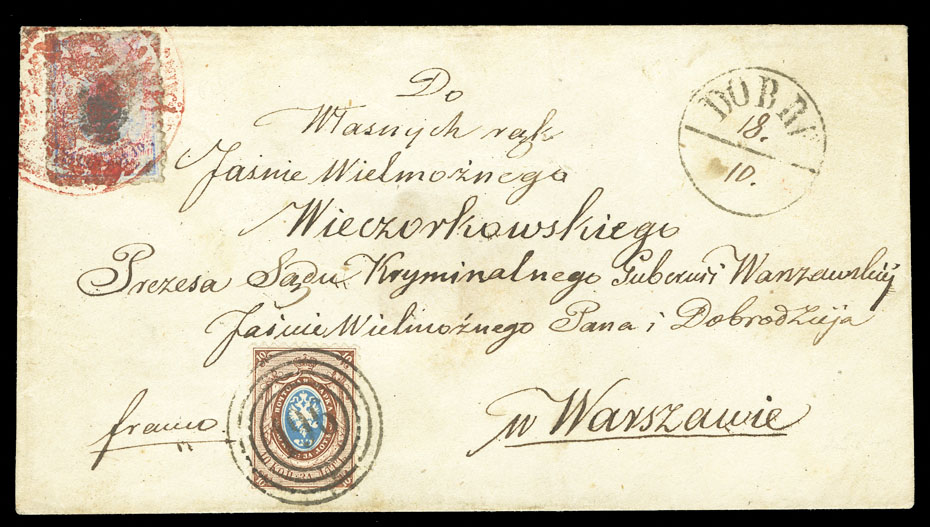 Do
Własnych rąk
Jaśnie Wielmożnego
Wieczorkowskiego
Prezesa Sądu Kryminalnego Gubernii Warszawskiej
Jaśnie Wielmożnego Pana i Dobrodzieja
w Warszawie
franco
DOBRE
18.
10.
10 10
ПОЧТОВАЯ МАРКА
10 КОП. ЗА ЛОТЪ
10 10